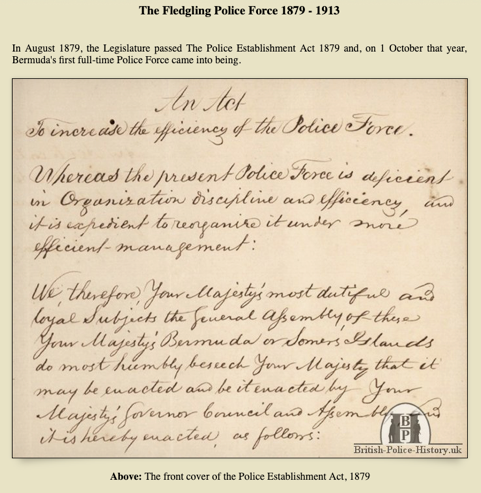 The Fledgling Police Force 1879 - 1913
In August 1879, the Legislature passed The Police Establishment Act 1879 and, on 1 October that year,
Bermuda's first full-time Police Force came into being.
An Act
To increase the efficiency of the Police Force.
Whereas the present Police Force is deficient
in Organization discipline and efficiency, and
it is expedient to reorganize it under more
efficient management:
We, therefore, Your Majesty's most dutiful and
loyal Subjects the General Assembly of these
Your Majesty's Bermuda or Somers Islands
do most humbly beseech Your Majesty that it
may be enacted and be it enacted by Your
Majesty's Governor Council and Assembly and
it is hereby enacted, as follows:
B
P
British-Police-History.uk
Above: The front cover of the Police Establishment Act, 1879